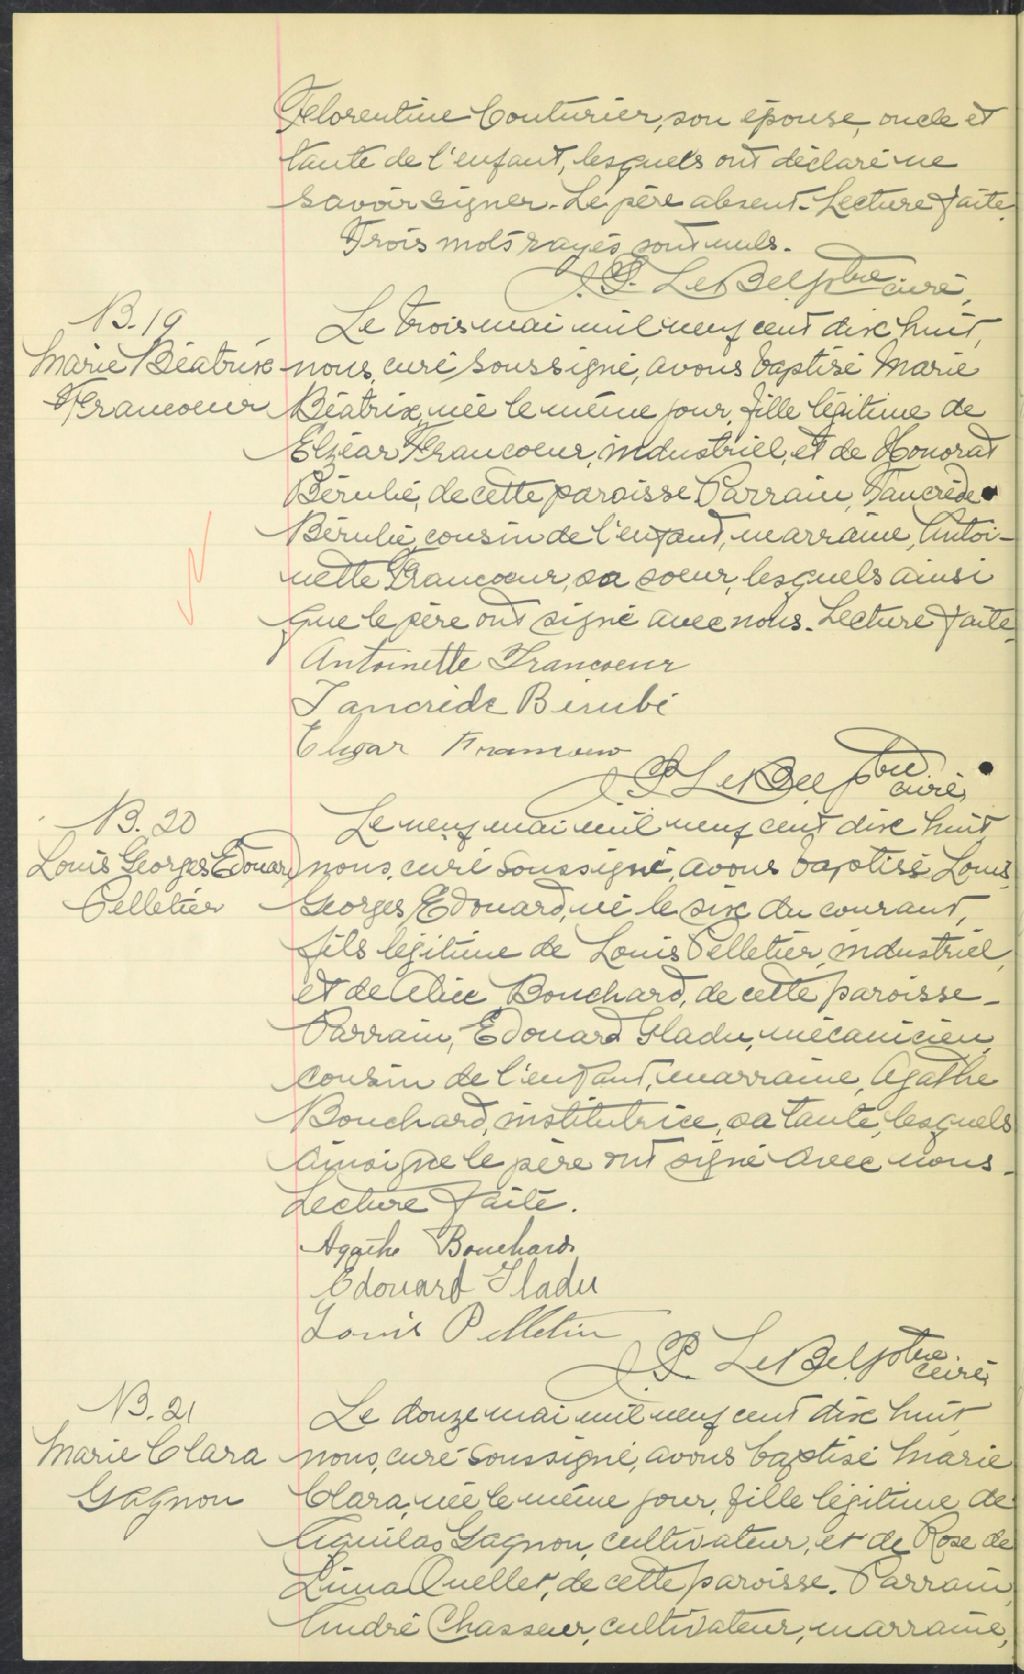 Florentine Couturier, son épouse, oncle et
tante de l'enfant, lesquels ont déclaré ne
savoir signer. Le père absent. Lecture faite.
Trois mots rayés sont nuls.
J. P. LeBel, ptre curé.
B. 19
Marie Béatrix
Francoeur
Le trois mai mil neuf cent dix huit,
nous, curé soussigné, avons baptisé Marie
Béatrix, née le même jour, fille légitime de
Elzéar Francoeur, industriel, et de Honorat
Bérubé, de cette paroisse. Parrain, Tancrède
Bérubé, cousin de l'enfant, marraine, Antoi-
nette Francoeur, sa soeur, lesquels ainsi
que le père ont signé avec nous. Lecture faite.
Antoinette Francoeur
Tancrède Bérubé
Elzear Francoeur
J. P. LeBel, ptre curé
B. 20
Louis Georges Edouard
Pelletier
Le neuf mai mil neuf cent dix huit
nous, curé soussigné, avons baptisé Louis
Georges Edouard, né le six du courant,
fils légitime de Louis Pelletier, industriel,
et de Alice Bouchard, de cette paroisse.
Parrain, Edouard Gladu, mécanicien,
cousin de l'enfant, marraine, Agathe
Bouchard, institutrice, sa tante, lesquels
ainsi que le père ont signé avec nous.
Lecture faite.
Agathe Bouchard
Edouard Gladu
Louis Pelletier
J. P. LeBel, ptre curé
B. 21
Marie Clara
Gagnon
Le douze mai mil neuf cent dix huit
nous, curé soussigné, avons baptisé Marie
Clara, née le même jour, fille légitime de
Aquilas Gagnon, cultivateur, et de Rose de
Lima Ouellet, de cette paroisse. Parrain,
André Chasseur, cultivateur, marraine,